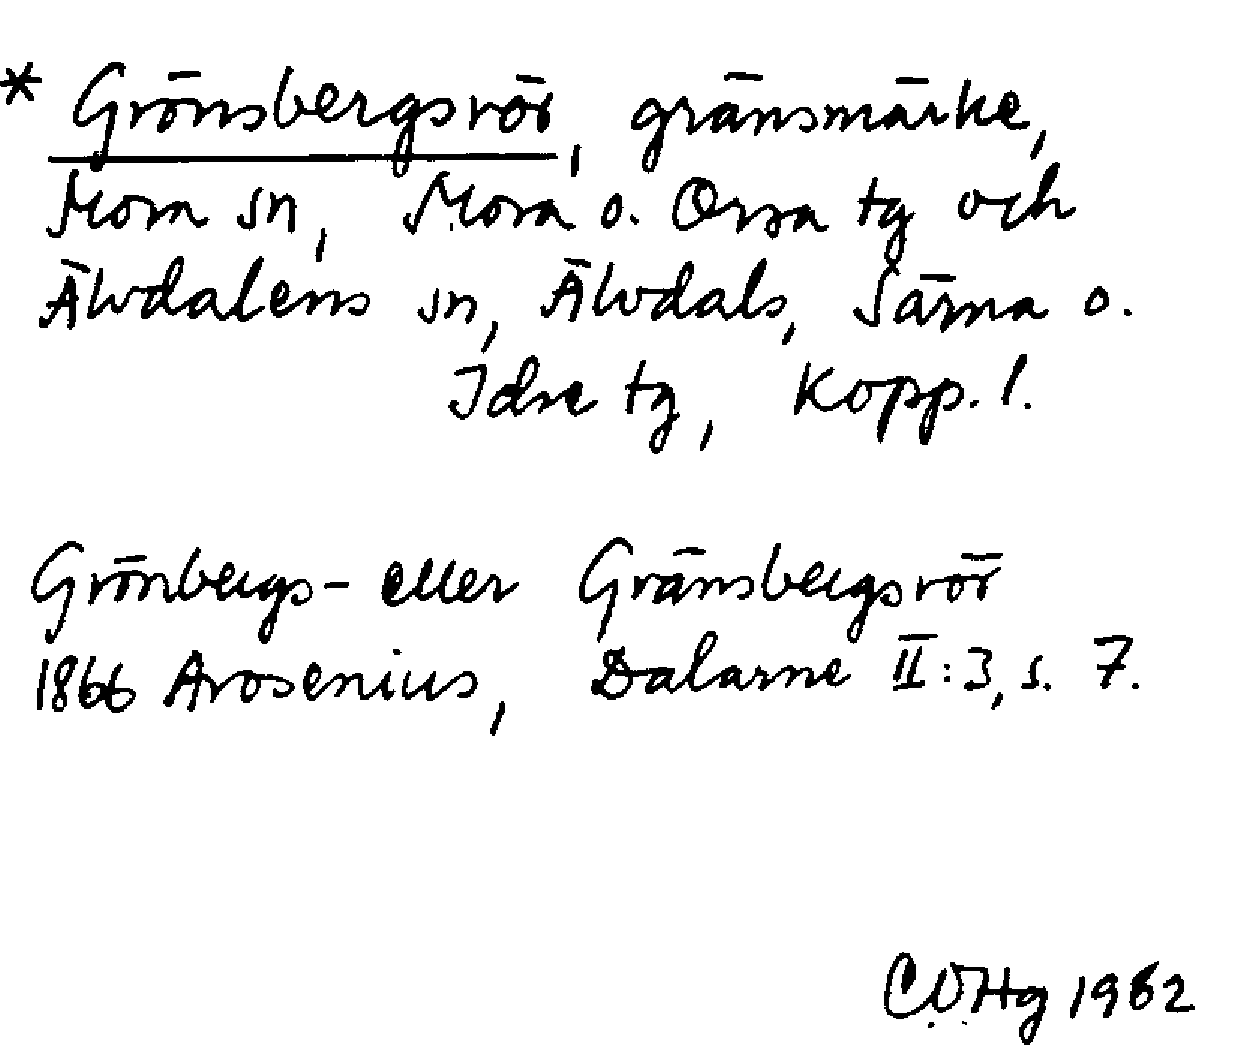 * Grönsbergsrör, gränsmärke,
Mora sn, Mora o. Orsa tg och
Älvdalens sn, Älvdals, Särna o.
Idre tg, Kopp. l.
Grönbergs- eller Gränsbergsrör
1866 Arosenius, Dalarne II:3, s. 7.
1982